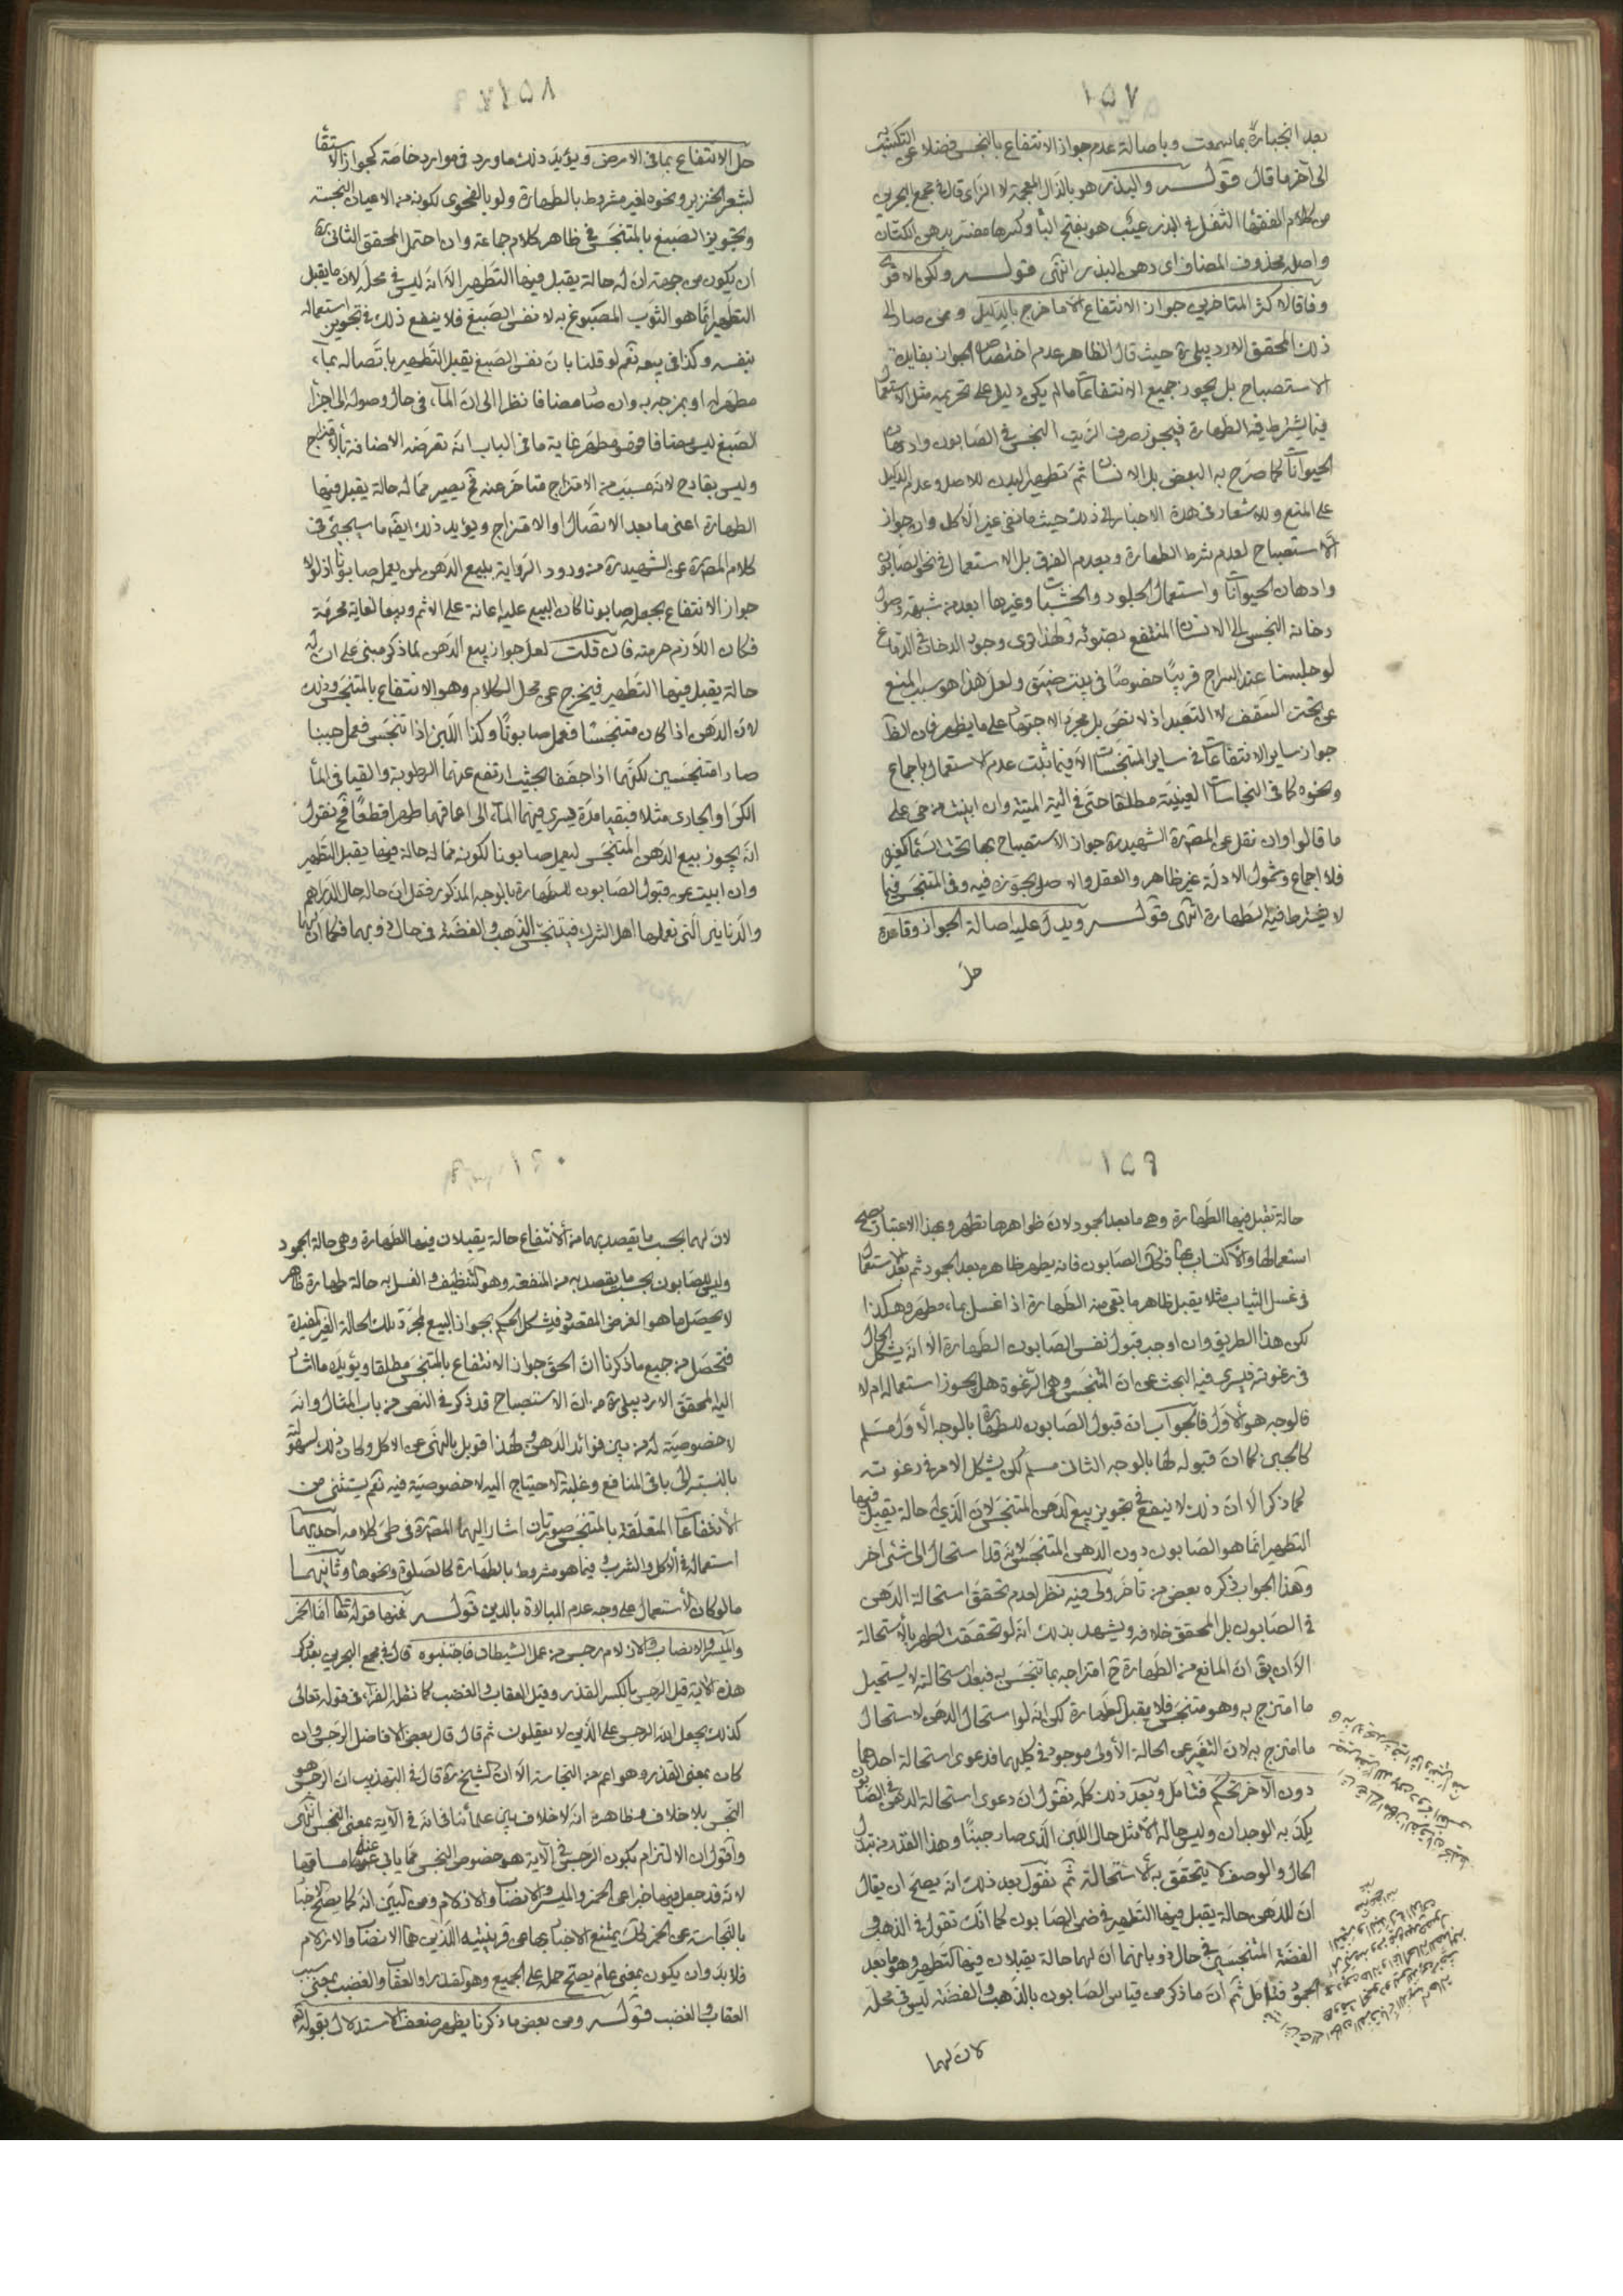 ١٥٧
بعد انجباره بما سمعت وباصالة عدم جواز الانتفاع بالنجس فضلا عن التكسب به
الى آخر ما قال قوله والبذر هو بالذال المعجمة لا الزاى قال فى مجمع البحرين
من كلام الفقهاء الثفل فى البذر عيب هو بفتح الباء وكسرها مفسر بدهن الكتان
واصله محذوف المضاف اى دهن البذر انتهى قوله ولكن الاقوى
وفاقا لاكثر المتاخرين جواز الانتفاع الا ما خرج بالدليل وممن صار الى
ذلك المحقق الاردبيلى ره حيث قال الظاهر عدم اختصاص الجواز بفايدة
الاستصباح بل يجوز جميع الانتفاعات ما لم يكن دليل على تحريمه مثل الاستعمال
فيما يشترط فيه الطهارة فيجوز صرف الزيت النجس فى الصابون وادهان
الحيوانات كما صرح به البعض بل الانسان ثم تطهير البدن للاصل وعدم الدليل
على المنع وللاشعار فى هذه الاخبار الى ذلك حيث ما نفى غير الاكل وان جواز
الاستصباح لعدم شرط الطهارة وبعدم الفرق بل الاستعمال فى نحو الصابون
وادهان الحيوانات واستعمال الجلود والخشبات وغيرها ابعد من شبهة وصول
دخانه النجس الى الانسان المنتفع بضوئه ولهذا نرى وجود الدخان فى الدماغ
لو جلسنا عند السراج قريبا خصوصا فى بيت ضيق ولعل هذا هو سبب المنع
عن تحت السقف لا التعبد اذ لا نص بل مجرد الاجتهاد على ما يظهر فان الظاهر
جواز ساير الانتفاعات فى ساير المتنجسات الا فيما ثبت عدم الاستعمال باجماع
ونحوه كما فى النجاسات العينية مطلقا حتى فى الية الميتة وان ابينت من حى على
ما قالوا وان نقل عن المصنف الشهيد ره جواز الاستصباح بها تحت السماء كغيره
فلا اجماع وشمول الادلة غير ظاهر والعقل والاصل يجوزه فيه وفى المتنجس فيما
لا يشترط فيه الطهارة انتهى قوله ويدل عليه اصالة الجواز وقاعدة
حل
١٥٨
حل الانتفاع بما فى الارض ويؤيد ذلك ما ورد فى موارد خاصة كجواز الاستقاء
لشعر الخنزير ونحوه لغير مشروط بالطهارة ولو بالفحوى لكونه من الاعيان النجسة
وتجويز الصبغ بالمتنجس فى ظاهر كلام جماعة وان احتمل المحقق الثانى ره
ان يكون من جهة ان له حالة يقبل فيها التطهير الا انه ليس فى محله لان ما يقبل
التطهير انما هو الثوب المصبوغ به لا نفس الصبغ فلا ينفع ذلك فى تجويز استعماله
بنفسه وكذا فى بيعه نعم لو قلنا بان نفس الصبغ يقبل التطهير باتصاله بماء
مطهر له او بمزجه به وان صار مضافا نظرا الى ان الماء فى حال وصوله الى اجزاء
الصبغ ليس مضافا فهو مطهر غاية ما فى الباب انه تعرضه الاضافة بالامتزاج
وليس بقادح لانه مسبب من الامتزاج متاخر عنه فح يصير مما له حالة يقبل فيها
الطهارة اعنى ما بعد الاتصال او الامتزاج ويؤيد ذلك ايضا ما سيجئ فى
كلام المصنف ره عن الشهيد ره من ورود الرواية ببيع الدهن لمن يعمل صابونا اذ لولا
جواز الانتفاع بجعله صابونا كان البيع عليه اعانة على الاثم وبيعا لغاية محرمة
فكان اللازم حرمته فان قلت لعل جواز بيع الدهن لما ذكر مبنى على ان له
حالة يقبل فيها التطهير فيخرج عن محل الكلام وهو الانتفاع بالمتنجس وذلك
لان الدهن اذا كان متنجسا فعمل صابونا وكذا اللبن اذا تنجس فعمل جبنا
صارا متنجسين لكنهما اذا جففا بحيث ارتفع عنهما الرطوبة والقيا فى الماء
الكر او الجارى مثلا فبقيا مدة يسرى فيهما الماء الى اعماقهما طهرا قطعا فح نقول
انه يجوز بيع الدهن المتنجس ليعمل صابونا لكونه مما له حالة فيها يقبل التطهير
وان ابيت عن قبول الصابون للطهارة بالوجه المذكور فقل ان حاله حال الدراهم
والدنانير التى تعملها اهل الشرك فيتنجس الذهب والفضة فى حال ذوبهما فكما ان لهما
١٥٩
حالة تقبل فيها الطهارة وهى ما بعد الجمود لان ظواهرها تطهر وبهذا الاعتبار صح
استعمالها والاكتساب بها فكذلك الصابون فانه يطهر ظاهره بعد الجمود ثم بعد الاستعمال
فى غسل الثياب مثلا يقبل ظاهر ما بقى منه الطهارة اذا غسل بماء مطهر وهكذا
لكن هذا الطريق وان اوجب قبول نفس الصابون الطهارة الا انه يشكل الحال
فى رغوته فيسرى فيه البحث عن ان المتنجس وهى الرغوة هل يجوز استعماله ام لا
فالوجه هو الاول فالجواب ان قبول الصابون للطهارة بالوجه الاول مسلم
كالجبن كما ان قبوله لها بالوجه الثانى مسلم لكن يشكل الامر فى رغوته
لما ذكر الا ان ذلك لا ينفع فى تجويز بيع الدهن المتنجس لان الذى له حالة يقبل فيها
التطهير انما هو الصابون دون الدهن المتنجس لانه قد استحال الى شئ آخر
وهذا الجواب ذكره بعض من تاخر ولى فيه نظر لعدم تحقق استحالة الدهن
فى الصابون بل المحقق خلافه ويشهد بذلك انه لو تحققت لطهر بالاستحالة
الا ان يق ان المانع من الطهارة ح امتزاجه بما تنجس به فبعد استحالته لا يستحيل
ما امتزج به وهو متنجس فلا يقبل الطهارة لكن انه لو استحال الدهن لاستحال
ما امتزج به لان التغير عن الحالة الاولى موجود فى كليهما فدعوى استحالة احدهما
دون الآخر تحكم فتامل وبعد ذلك كله نقول ان دعوى استحالة الدهن فى الصابون
يكذبه الوجدان وليس حاله الا مثل حال اللبن الذى صار جبنا وهذا القدر من تبدل
الحال والوصف لا يتحقق به الاستحالة ثم نقول بعد ذلك انه يصح ان يقال
ان للدهن حالة يقبل فيها التطهير فى ضمن الصابون كما انك تقول فى الذهب و
الفضة المتنجسين فى حال ذوبانهما ان لهما حالة يقبلان فيها التطهير وهو ما بعد
الجمود فتامل ثم ان ما ذكر من قياس الصابون بالذهب والفضة ليس فى محله
لان لهما
١٦٠
لان لهما بحسب ما يقصد بهما من الانتفاع حالة يقبلان فيها الطهارة وهى حالة الجمود
وليس للصابون بحسب ما يقصد به من المنفعة وهو التنظيف والغسل به حالة طهارة ظاهر
لا يحصل ما هو الغرض المقصود فيشكل الحكم بجواز البيع لمجرد تلك الحالة الغير المفيدة
فتحصل من جميع ما ذكرنا ان الحق جواز الانتفاع بالمتنجس مطلقا ويؤيده ما اشار
اليه المحقق الاردبيلى ره من ان الاستصباح قد ذكر فى النص من باب المثال وانه
لا خصوصية له من بين فوائد الدهن ولهذا قوبل بالنهى عن الاكل وكان ذلك لسهولته
بالنسبة الى باقى المنافع وغلبة الاحتياج اليه لا خصوصية فيه نعم يستثنى من
الانتفاعات المتعلقة بالمتنجس صورتان اشار اليهما المصنف ره فى طى كلامه احديهما
استعماله فى الاكل والشرب وفيما هو مشروط بالطهارة كالصلوة ونحوها وثانيهما
ما لو كان الاستعمال على وجه عدم المبالاة بالدين قوله فمنها قوله تعالى انما الخمر
والميسر والانصاب والازلام رجس من عمل الشيطان فاجتنبوه قال فى مجمع البحرين بعد ذكر
هذه الاية قيل الرجس بالكسر القذر وقيل العقاب والغضب كما نقله الفراء فى قوله تعالى
كذلك يجعل الله الرجس على الذين لا يعقلون ثم قال قال بعض الافاضل الرجس وان
كان بمعنى القذر وهو اعم من النجاسة الا ان الشيخ ره قال فى التهذيب ان الرجس هو
النجس بلا خلاف وظاهره انه لا خلاف بين علمائنا فى انه فى الآية بمعنى النجس انتهى
واقول ان الالتزام بكون الرجس فى الآية هو خصوص النجس مما يابى عنه مساقها
لانه قد جعل فيها خبرا عن الخمر والميسر والانصاب والازلام ومن البين انه كما يصح الاخبار
بالنجاسة عن الخمر كذلك يمتنع الاخبار بها عن قرينيه اللذين هما الانصاب والازلام
فلا بد وان يكون بمعنى عام يصح حمله على الجميع وهو القذر او العقاب والغضب بمعنى سبب
العقاب والغضب قوله ومن بعض ما ذكرنا يظهر ضعف الاستدلال بقوله تعالى